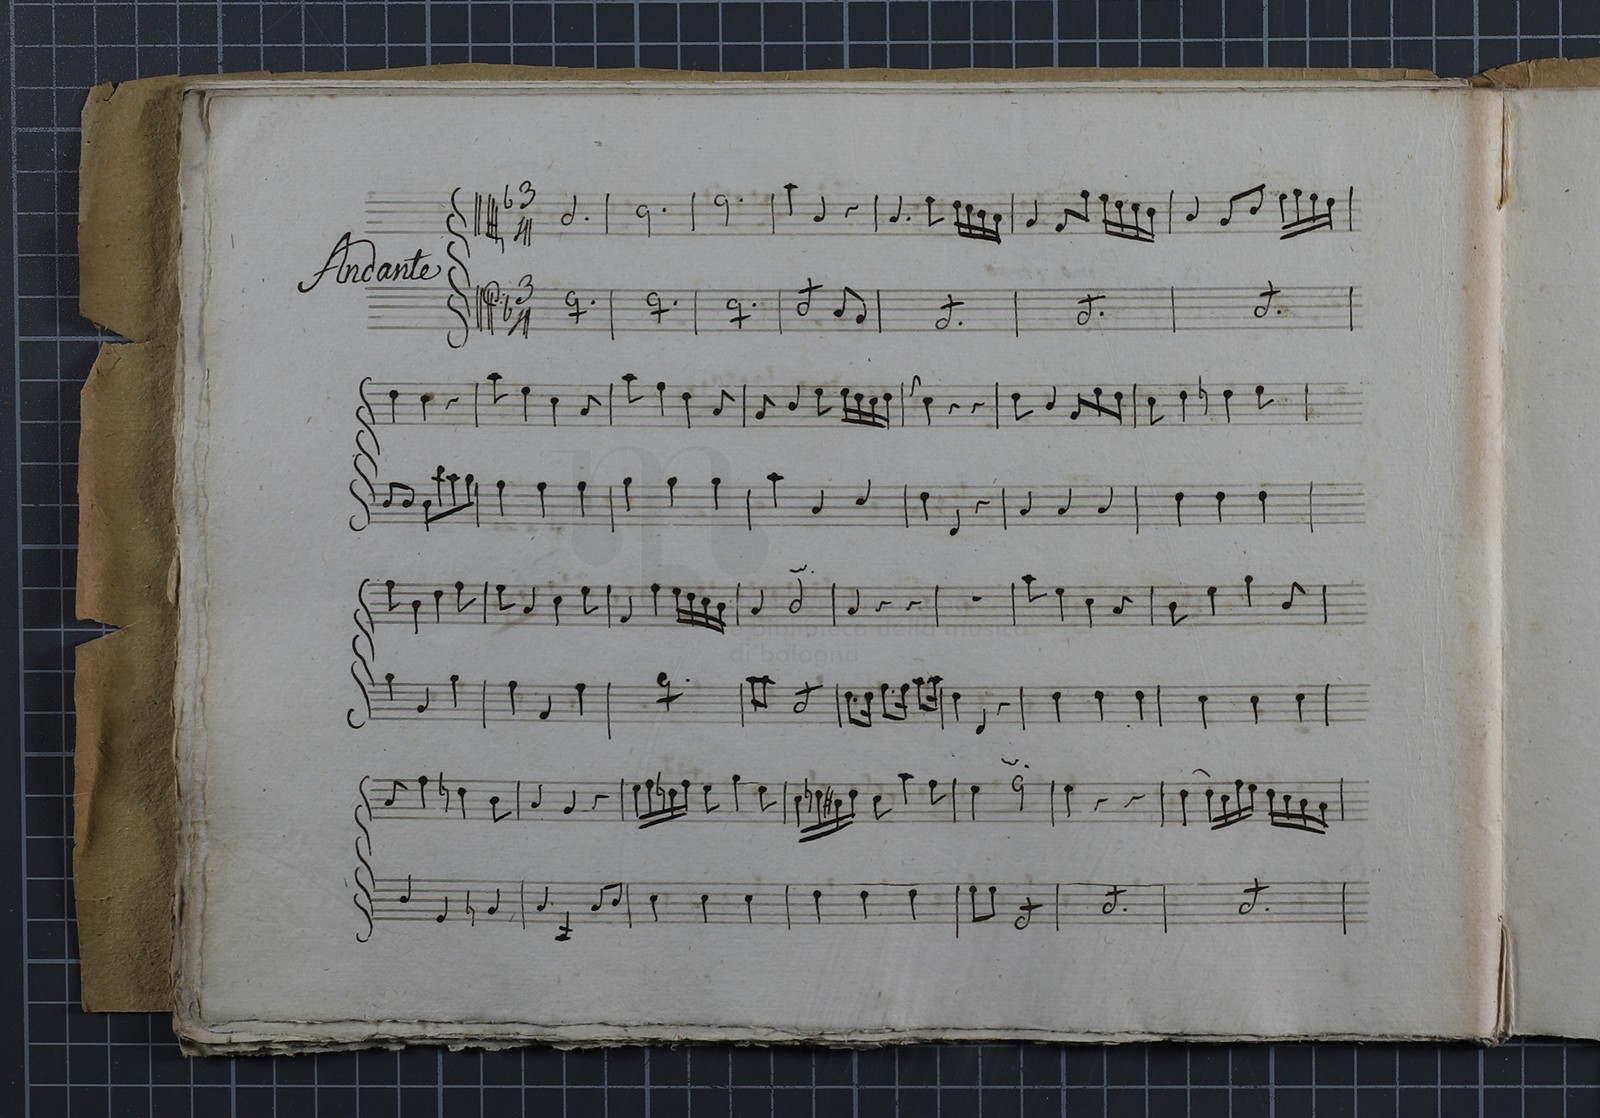 3
Andante
3
biblioteca della musica
di bologna